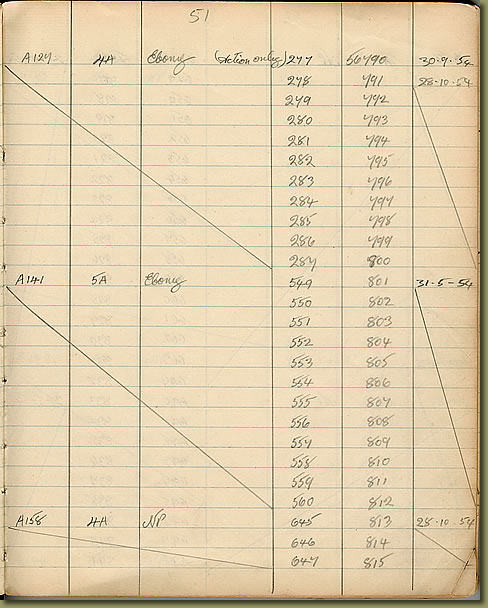 51
A127 4A Ebony (Action only) 277 56790 30-9-54
278 791 28-10-54
279 792
280 793
281 794
282 795
283 796
284 797
285 798
286 799
287 800
A141 5A Ebony 549 801 31-5-54
550 802
551 803
552 804
553 805
554 806
555 807
556 808
557 809
558 810
559 811
560 812
A158 4A NP 645 813 28-10-54
646 814
647 815